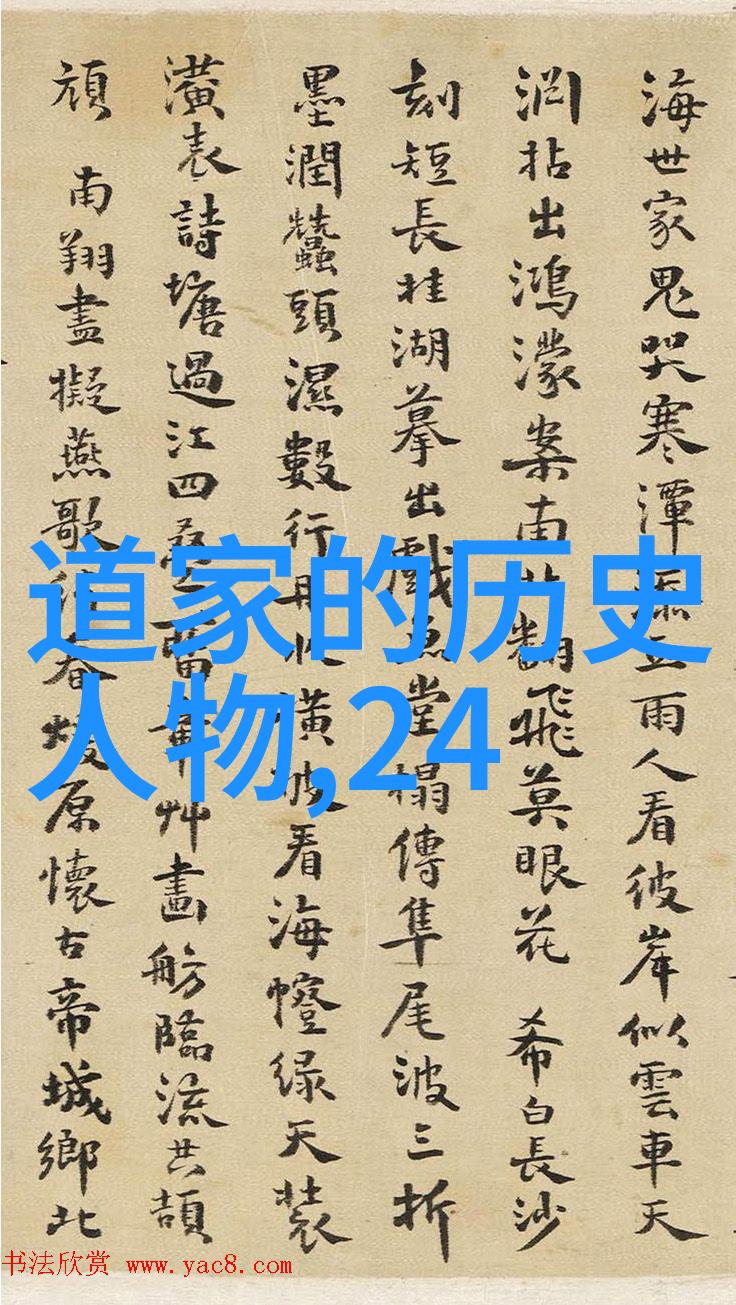 海世家鬼哭寒潭立雨人看彼岸似雲車天
淵拈出鴻濛案南翻飛莫眼花 希白長沙
刻短長桂湖摹出戲魚堂榻傳隼尾波三折
墨潤蠶頭濕數行冊看海幢綠天裝
潢表詩塘過江四艸畫舫臨流共頡
頏 南翔盡擬燕歌春煖原懷古帝城鄉北
道家的历史
人物,24
书法欣赏 www.yac8.com